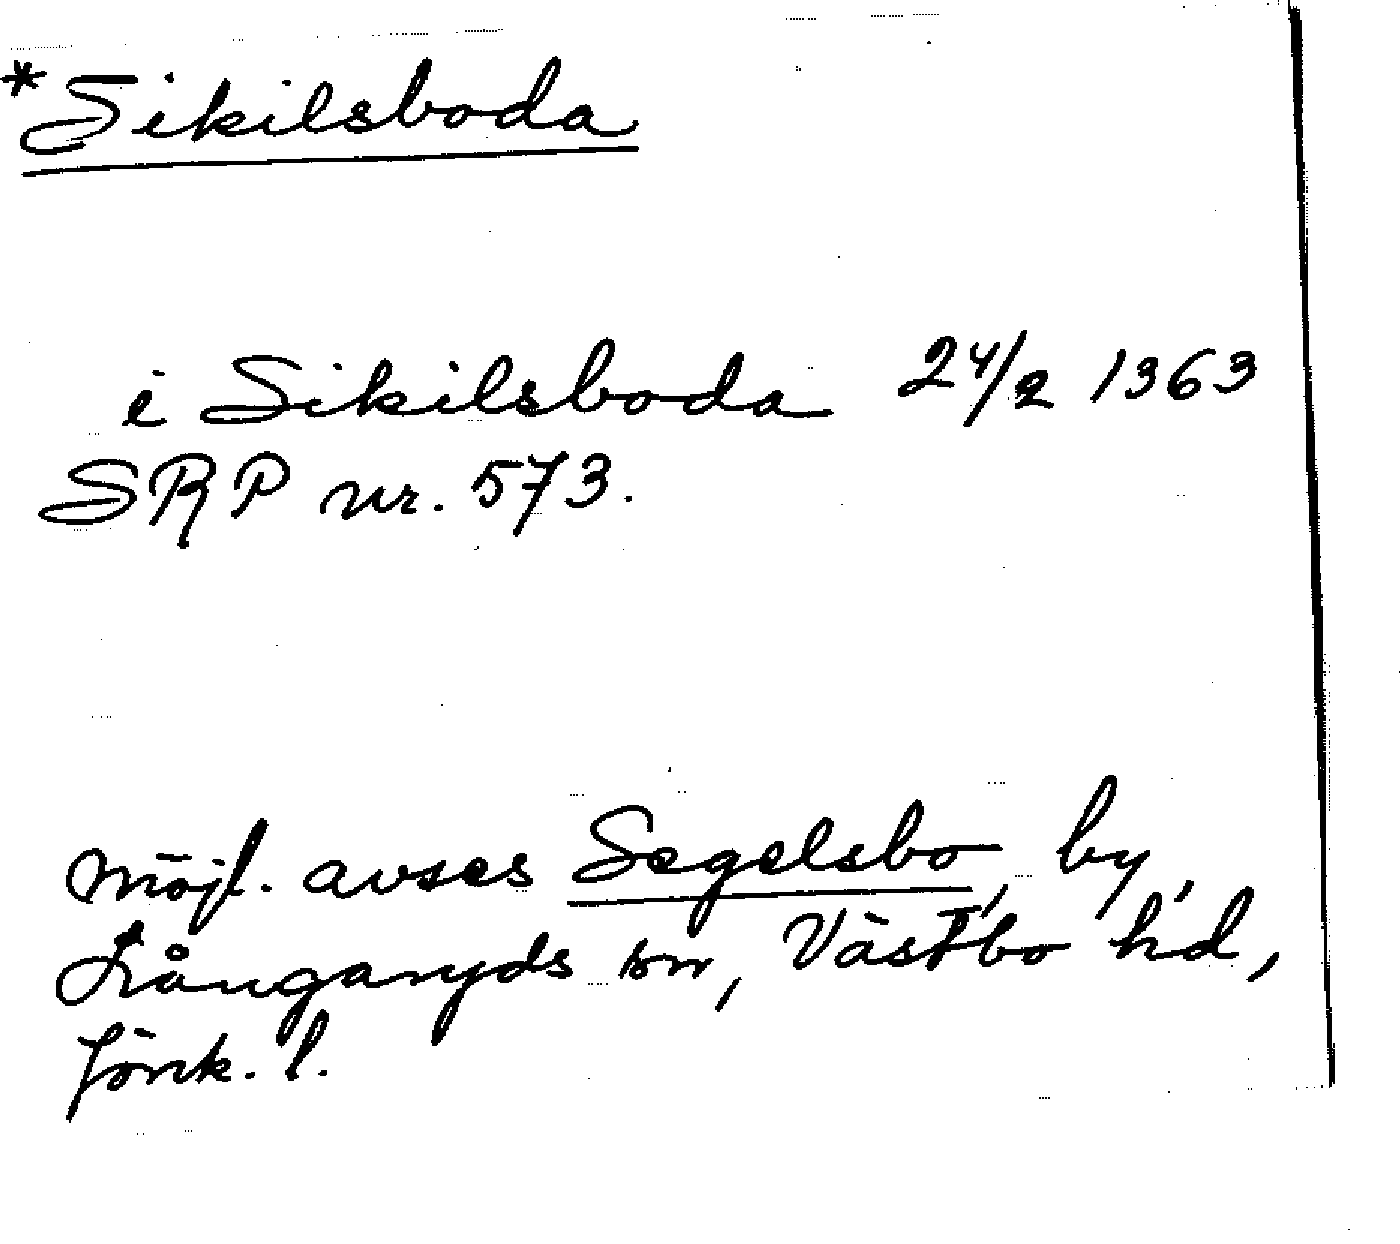 *Sikilsboda
i Sikilsboda 24/2 1363
SRP nr. 573.
Möjl. avses Segelsbo, by,
Långaryds sn, Västbo hd,
Jönk. l.